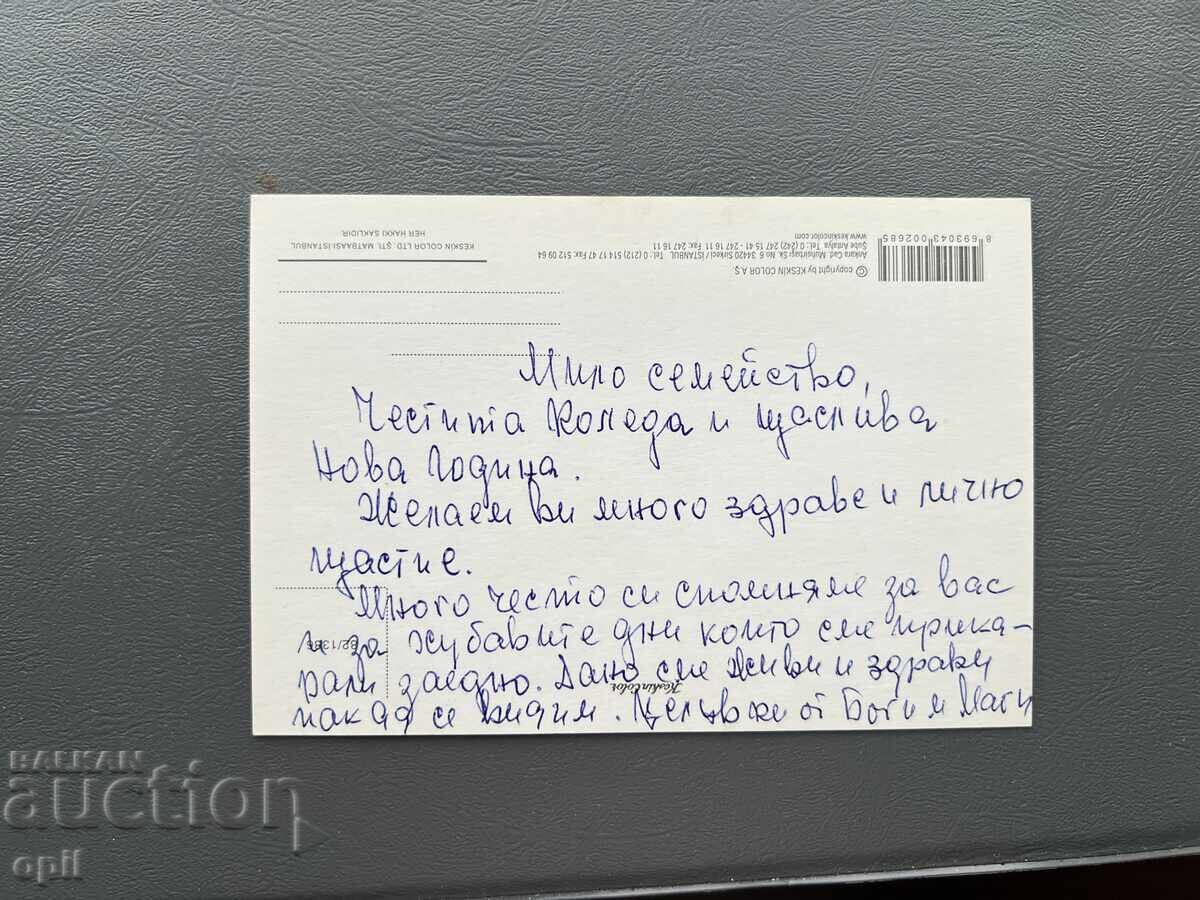 KESKİN COLOR LTD. ŞTİ. MATBAASI-İSTANBUL
HER HAKKI SAKLIDIR
© copyright by KESKİN COLOR A.Ş.
Ankara Cad. Mühürdarpaşa Sk. No 6 34420 Sirkeci / İSTANBUL Tel.: 0 (212) 514 17 47 Fax: 512 09 64
Şube Antalya Tel.: 0 (242) 247 15 41 - 247 16 11 Fax: 247 16 11
www.keskincolor.com
8 693043 002685
Мило семейство,
Честита Коледа и щаслива
Нова Година.
Желаем ви много здраве и лично
щастие.
Много често си спомняме за вас
и за хубавите дни които сме прика-
рали заедно. Дано сме живи и здрави
пак да се видим. Целувки от Боги и Маги
Keskin Color
BALKAN
auction
opil